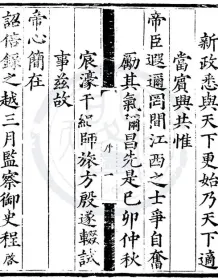 新政悉與天下更始乃天下適
當賓興共惟
帝臣遐邇閭閈江西之士爭自奮
勵其氣彌昌先是己卯仲秋
序 一
宸濠干紀師旅方殷遂輟試
事茲故
帝心簡在
詔倍錄之越三月監察御史程啟